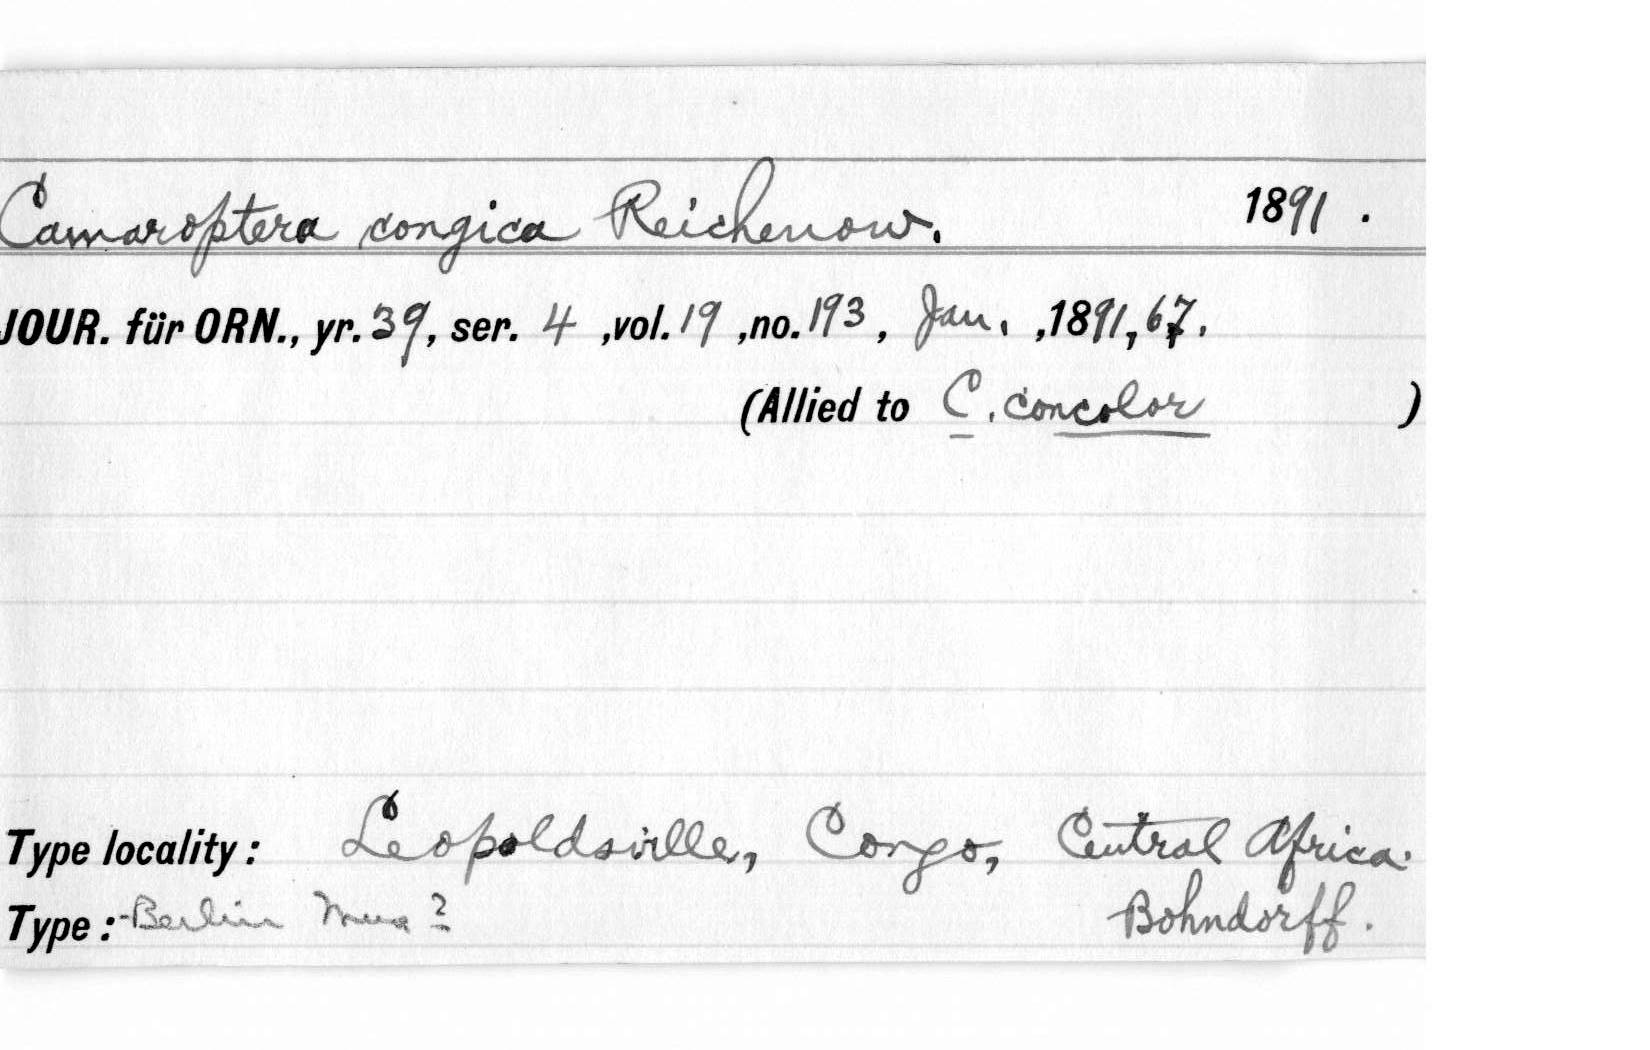 Camaroptera congica Reichenow. 1891.
JOUR. für ORN., yr. 39, ser. 4, vol. 19, no. 193, Jan., 1891, 67.
(Allied to C. concolor )
Type locality: Leopoldsville, Congo, Central Africa.
Type: Berlin Mus? Bohndorff.